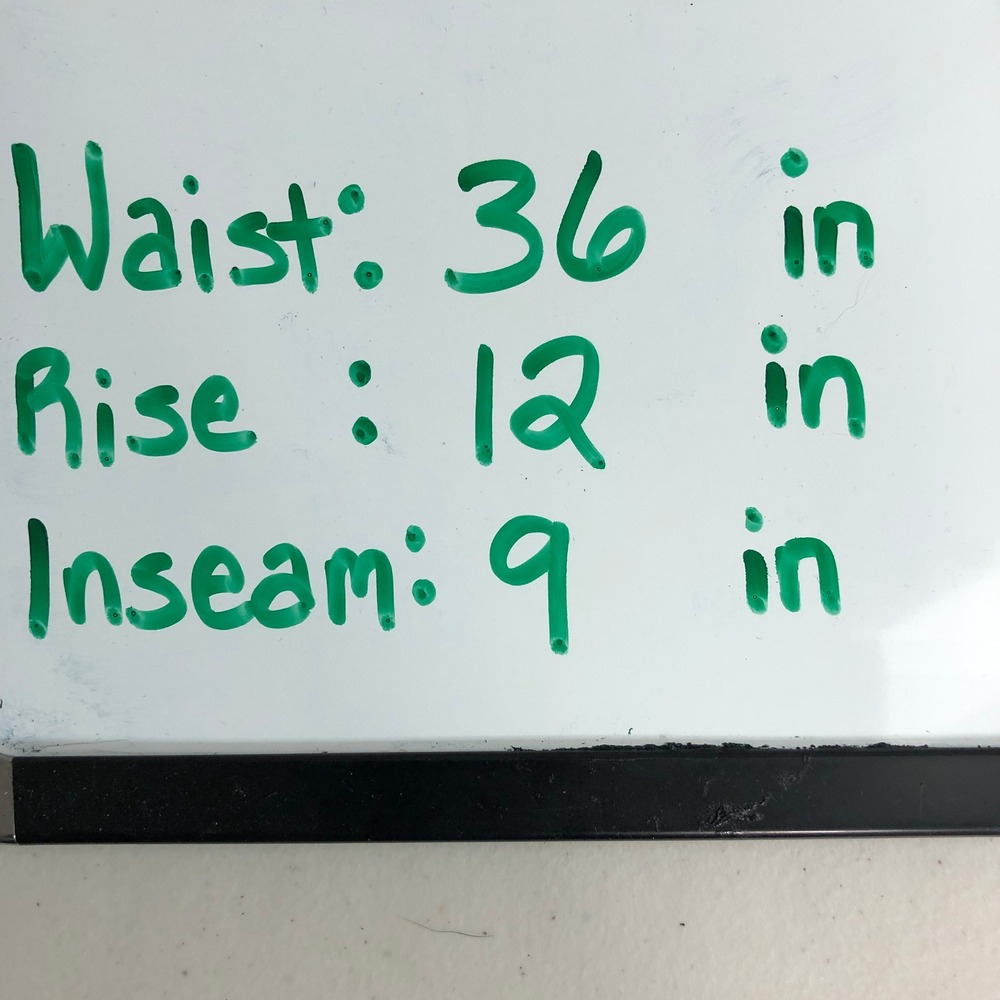 Waist: 36 in
Rise : 12 in
Inseam: 9 in